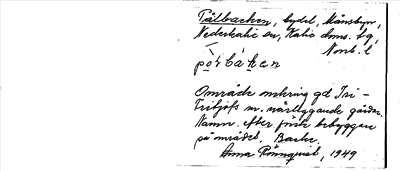 Pålbacken, bydel, Månsbyn,
Nederkalix sn, Kalix doms. tg,
Norrb. l
Område omkring gd Fri-
Fritjofs m. närliggande gårdar.
Namn. efter förste bebyggare
på området. Backe.
Anna Rönnqvist, 1949